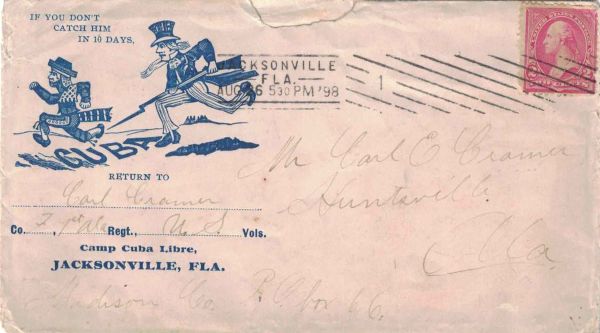 IF YOU DON'T
CATCH HIM
IN 10 DAYS,
CUBA
JACKSONVILLE
FLA.
AUG 6 530 PM '98
1
RETURN TO
Carl Cramer
Co. 3, 1st Ala Regt., U. S. Vols.
Camp Cuba Libre,
JACKSONVILLE, FLA.
Mr Carl E Cramer
Huntsville
Ala
Madison Co. P. O. box 66.